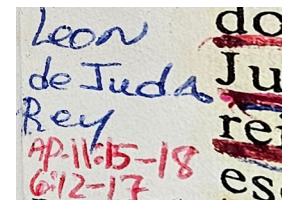 Leon
de Juda
Rey
AP.11:15-18
6:12-17
do
Ju
rei
es